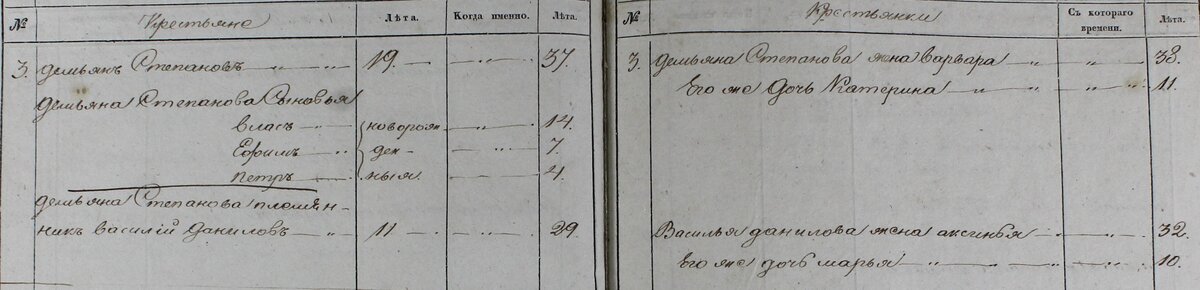 № Крестьяне Лѣта. Когда именно. Лѣта.
3. демьянъ Степановъ — „ — „ — 19. — — „ — 37.
демьяна Степанова Сыновья
власъ — „ — новорож — „ — 14.
Ефимъ — „ ден — — „ — 7.
петръ — ныя — „ — 4.
демьяна Степанова племян-
никъ василій даниловъ — „ — 11 — — „ — 29.
№ Крестьянки Съ котораго времени. Лѣта.
3. демьяна Степанова жена варвара — „ — „ — 38.
Его же дочь Катерина — „ — „ — „ — 11.
Василья данилова жена аксинья — „ — „ — 32.
Его же дочь марья — „ — „ — „ — „ — 10.